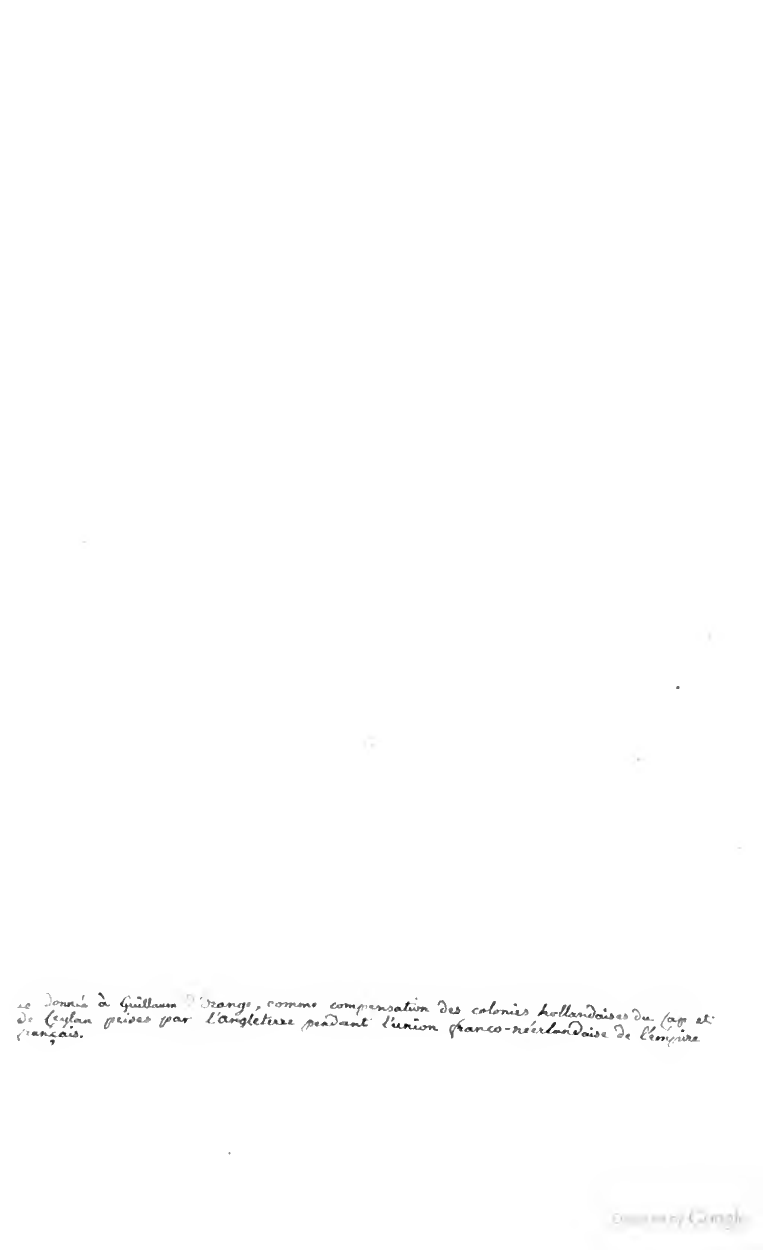 donnée à Guillaume d'Orange, comme compensation des colonies hollandaises du Cap et
de Ceylan prises par l'angleterre pendant l'union franco-néerlandaise de l'empire
français.
Google